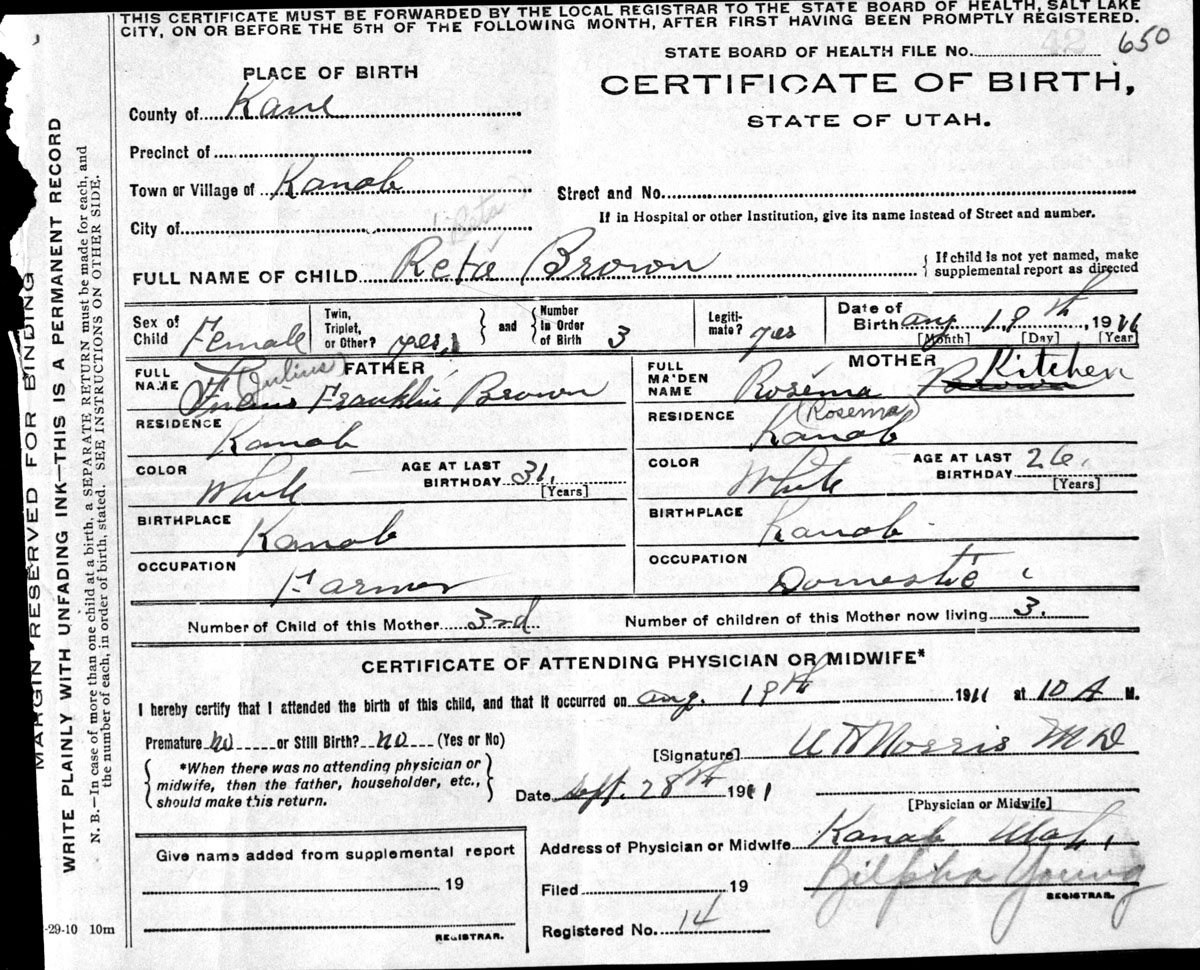 THIS CERTIFICATE MUST BE FORWARDED BY THE LOCAL REGISTRAR TO THE STATE BOARD OF HEALTH, SALT LAKE
CITY, ON OR BEFORE THE 5TH OF THE FOLLOWING MONTH, AFTER FIRST HAVING BEEN PROMPTLY REGISTERED.
STATE BOARD OF HEALTH FILE No. 42 650
PLACE OF BIRTH
CERTIFICATE OF BIRTH,
STATE OF UTAH.
County of Kane
Precinct of
Town or Village of Kanab
Street and No.
If in Hospital or other Institution, give its name instead of Street and number.
City of
Reta
FULL NAME OF CHILD Reta Brown { If child is not yet named, make supplemental report as directed
Sex of Child Female Twin, Triplet, or Other? yes, and Number In Order of Birth 3 Legiti-mate? yes Date of Birth Aug 18th, 1911
[Month] [Day] [Year]
FATHER
MOTHER
FULL NAME (Julius) Franklin Brown
FULL MAIDEN NAME Rosema Brown Kitchen
(Rosema)
RESIDENCE Kanab
RESIDENCE Kanab
COLOR White AGE AT LAST BIRTHDAY 31. [Years]
COLOR White AGE AT LAST BIRTHDAY 26. [Years]
BIRTHPLACE Kanab
BIRTHPLACE Kanab
OCCUPATION Farmer
OCCUPATION Domestic
Number of Child of this Mother 3rd Number of children of this Mother now living 3.
CERTIFICATE OF ATTENDING PHYSICIAN OR MIDWIFE*
I hereby certify that I attended the birth of this child, and that it occurred on Aug. 18th 1911 at 10 A M.
Premature no or Still Birth? no (Yes or No)
*When there was no attending physician or
midwife, then the father, householder, etc.,
should make this return.
[Signature] Norris MD
Date Sept. 28th 1911
[Physician or Midwife]
Address of Physician or Midwife Kanab Utah,
Filed 19 Zilpha Young
REGISTRAR.
Registered No. 14
Give name added from supplemental report
19
REGISTRAR.
-29-10 10m
MARGIN RESERVED FOR BINDING
WRITE PLAINLY WITH UNFADING INK—THIS IS A PERMANENT RECORD
N. B.—In case of more than one child at a birth, a SEPARATE RETURN must be made for each, and
the number of each, in order of birth, stated. SEE INSTRUCTIONS ON OTHER SIDE.